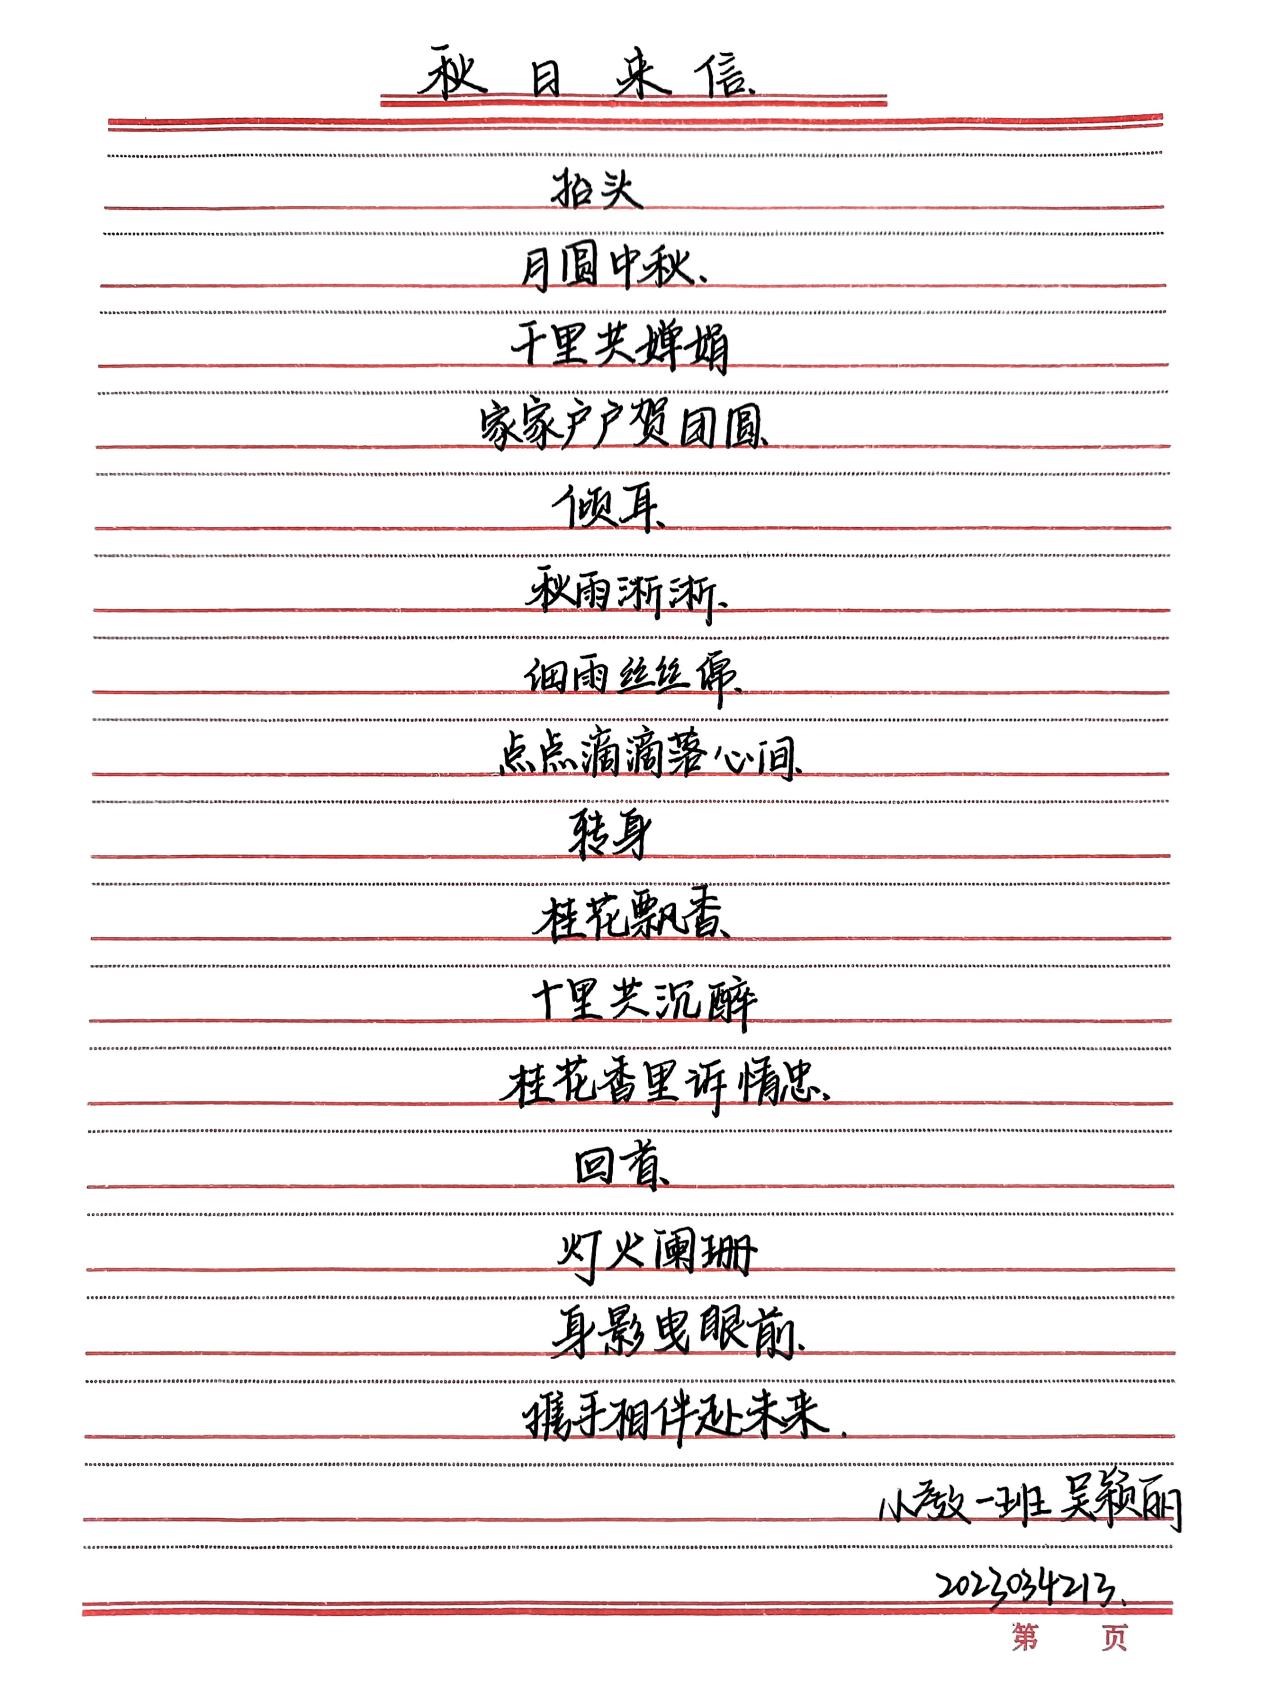 秋日来信
抬头
月圆中秋、
千里共婵娟
家家户户贺团圆、
倾耳、
秋雨淅淅、
细雨丝丝绵、
点点滴滴落心间、
转身
桂花飘香、
十里共沉醉
桂花香里诉情忠、
回首、
灯火阑珊
身影曳眼前、
携手相伴赴未来.
小教一班 吴颖丽
2023034213、
第 页